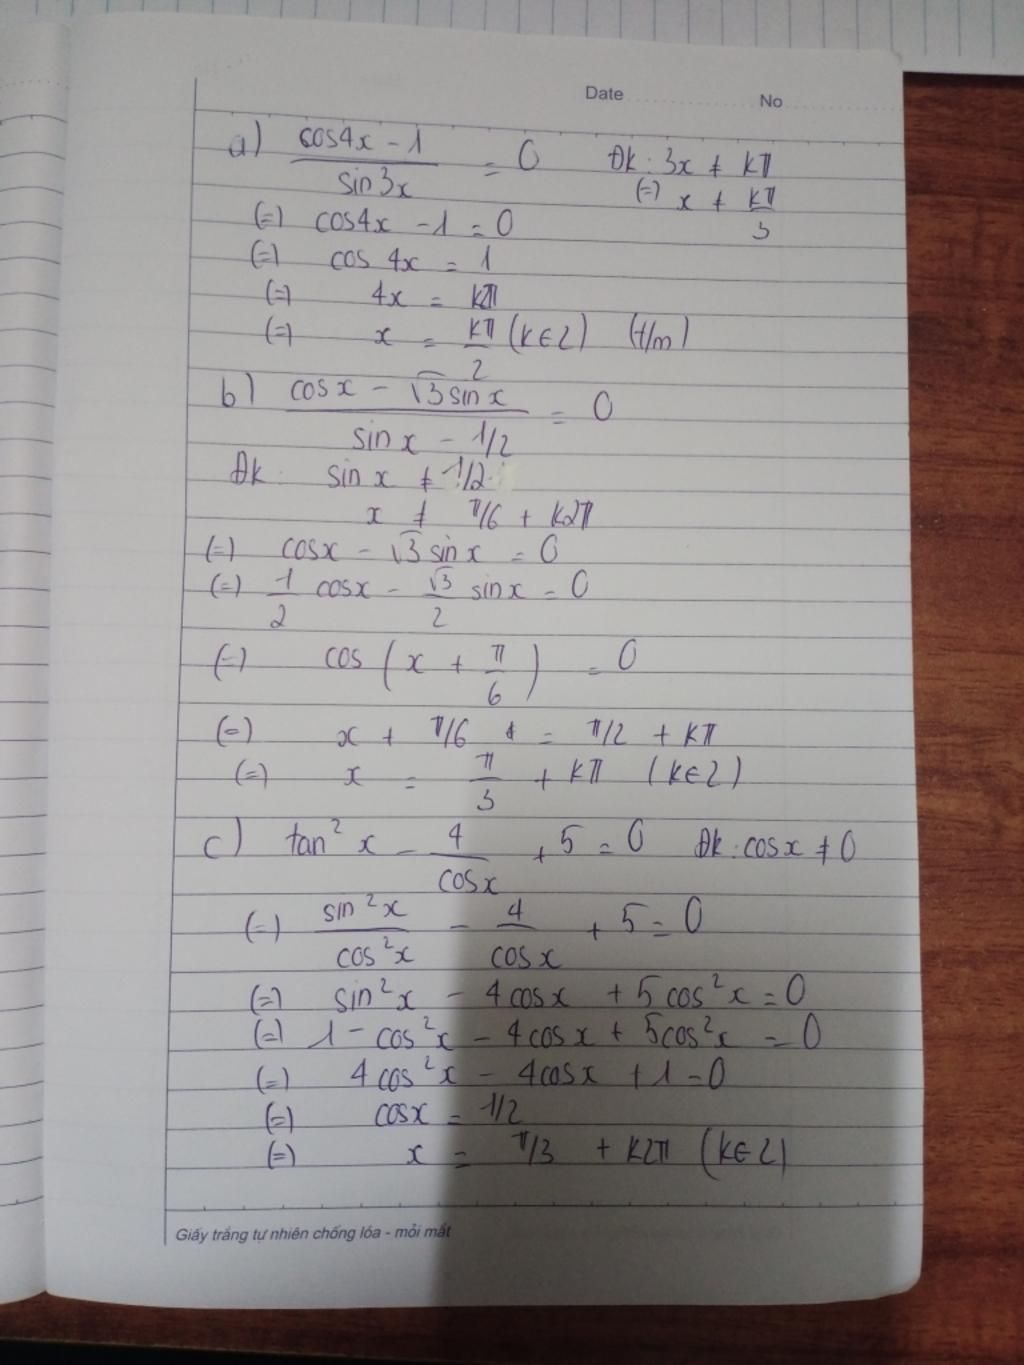 Date No
a) cos4x - 1 / sin3x = 0 Đk: 3x ≠ kπ
(=) x ≠ kπ/3
(=) cos4x - 1 = 0
(=) cos 4x = 1
(=) 4x = k2π
(=) x = kπ/2 (k∈Z) (t/m)
b) cosx - √3sinx / sinx - 1/2 = 0
Đk: sinx ≠ 1/2
x ≠ π/6 + k2π
(=) cosx - √3 sinx = 0
(=) 1/2 cosx - √3/2 sinx = 0
(=) cos (x + π/6) = 0
(=) x + π/6 = π/2 + kπ
(=) x = π/3 + kπ (k∈Z)
c) tan²x - 4/cosx + 5 = 0 Đk: cosx ≠ 0
(=) sin²x/cos²x - 4/cosx + 5 = 0
(=) sin²x - 4cosx + 5cos²x = 0
(=) 1 - cos²x - 4cosx + 5cos²x = 0
(=) 4cos²x - 4cosx + 1 = 0
(=) cosx = 1/2
(=) x = π/3 + k2π (k∈Z)
Giấy trắng tự nhiên chống lóa - mỏi mắt